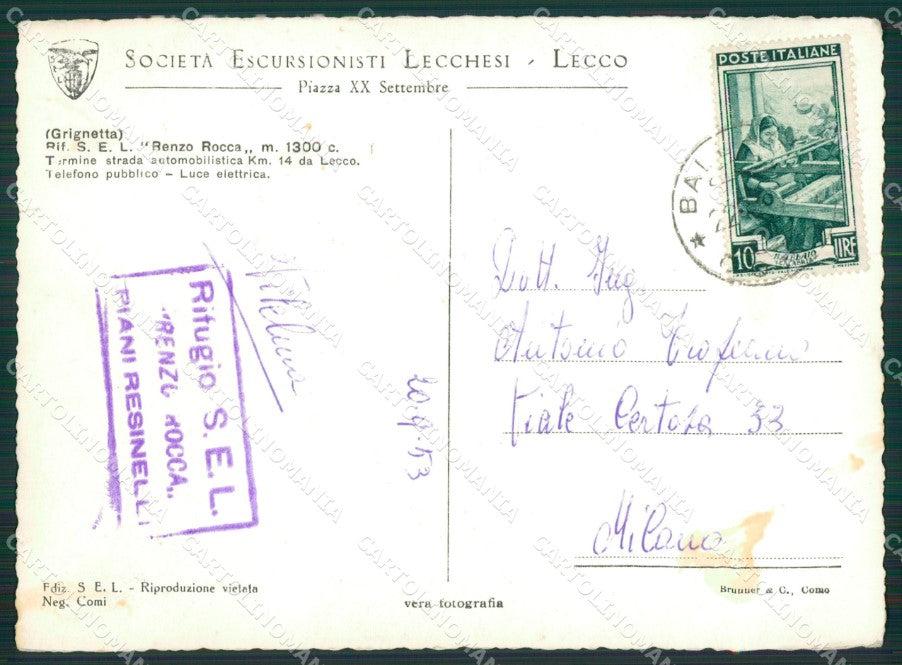 SOCIETÀ ESCURSIONISTI LECCHESI - LECCO
Piazza XX Settembre
(Grignetta)
Rif. S. E. L. "Renzo Rocca,, m. 1300 c.
Termine strada automobilistica Km. 14 da Lecco.
Telefono pubblico - Luce elettrica.
POSTE ITALIANE
10 LIRE
BAL
Rifugio S.E.L.
"RENZO ROCCA,,
PIANI RESINELLI
20.9.53
Dott. Ing
Antonio
Viale Certosa 33
Milano
Ediz. S E. L. - Riproduzione vietata
Neg. Comi
vera fotografia
Brunner & C., Como
CARTOLINOMANIA